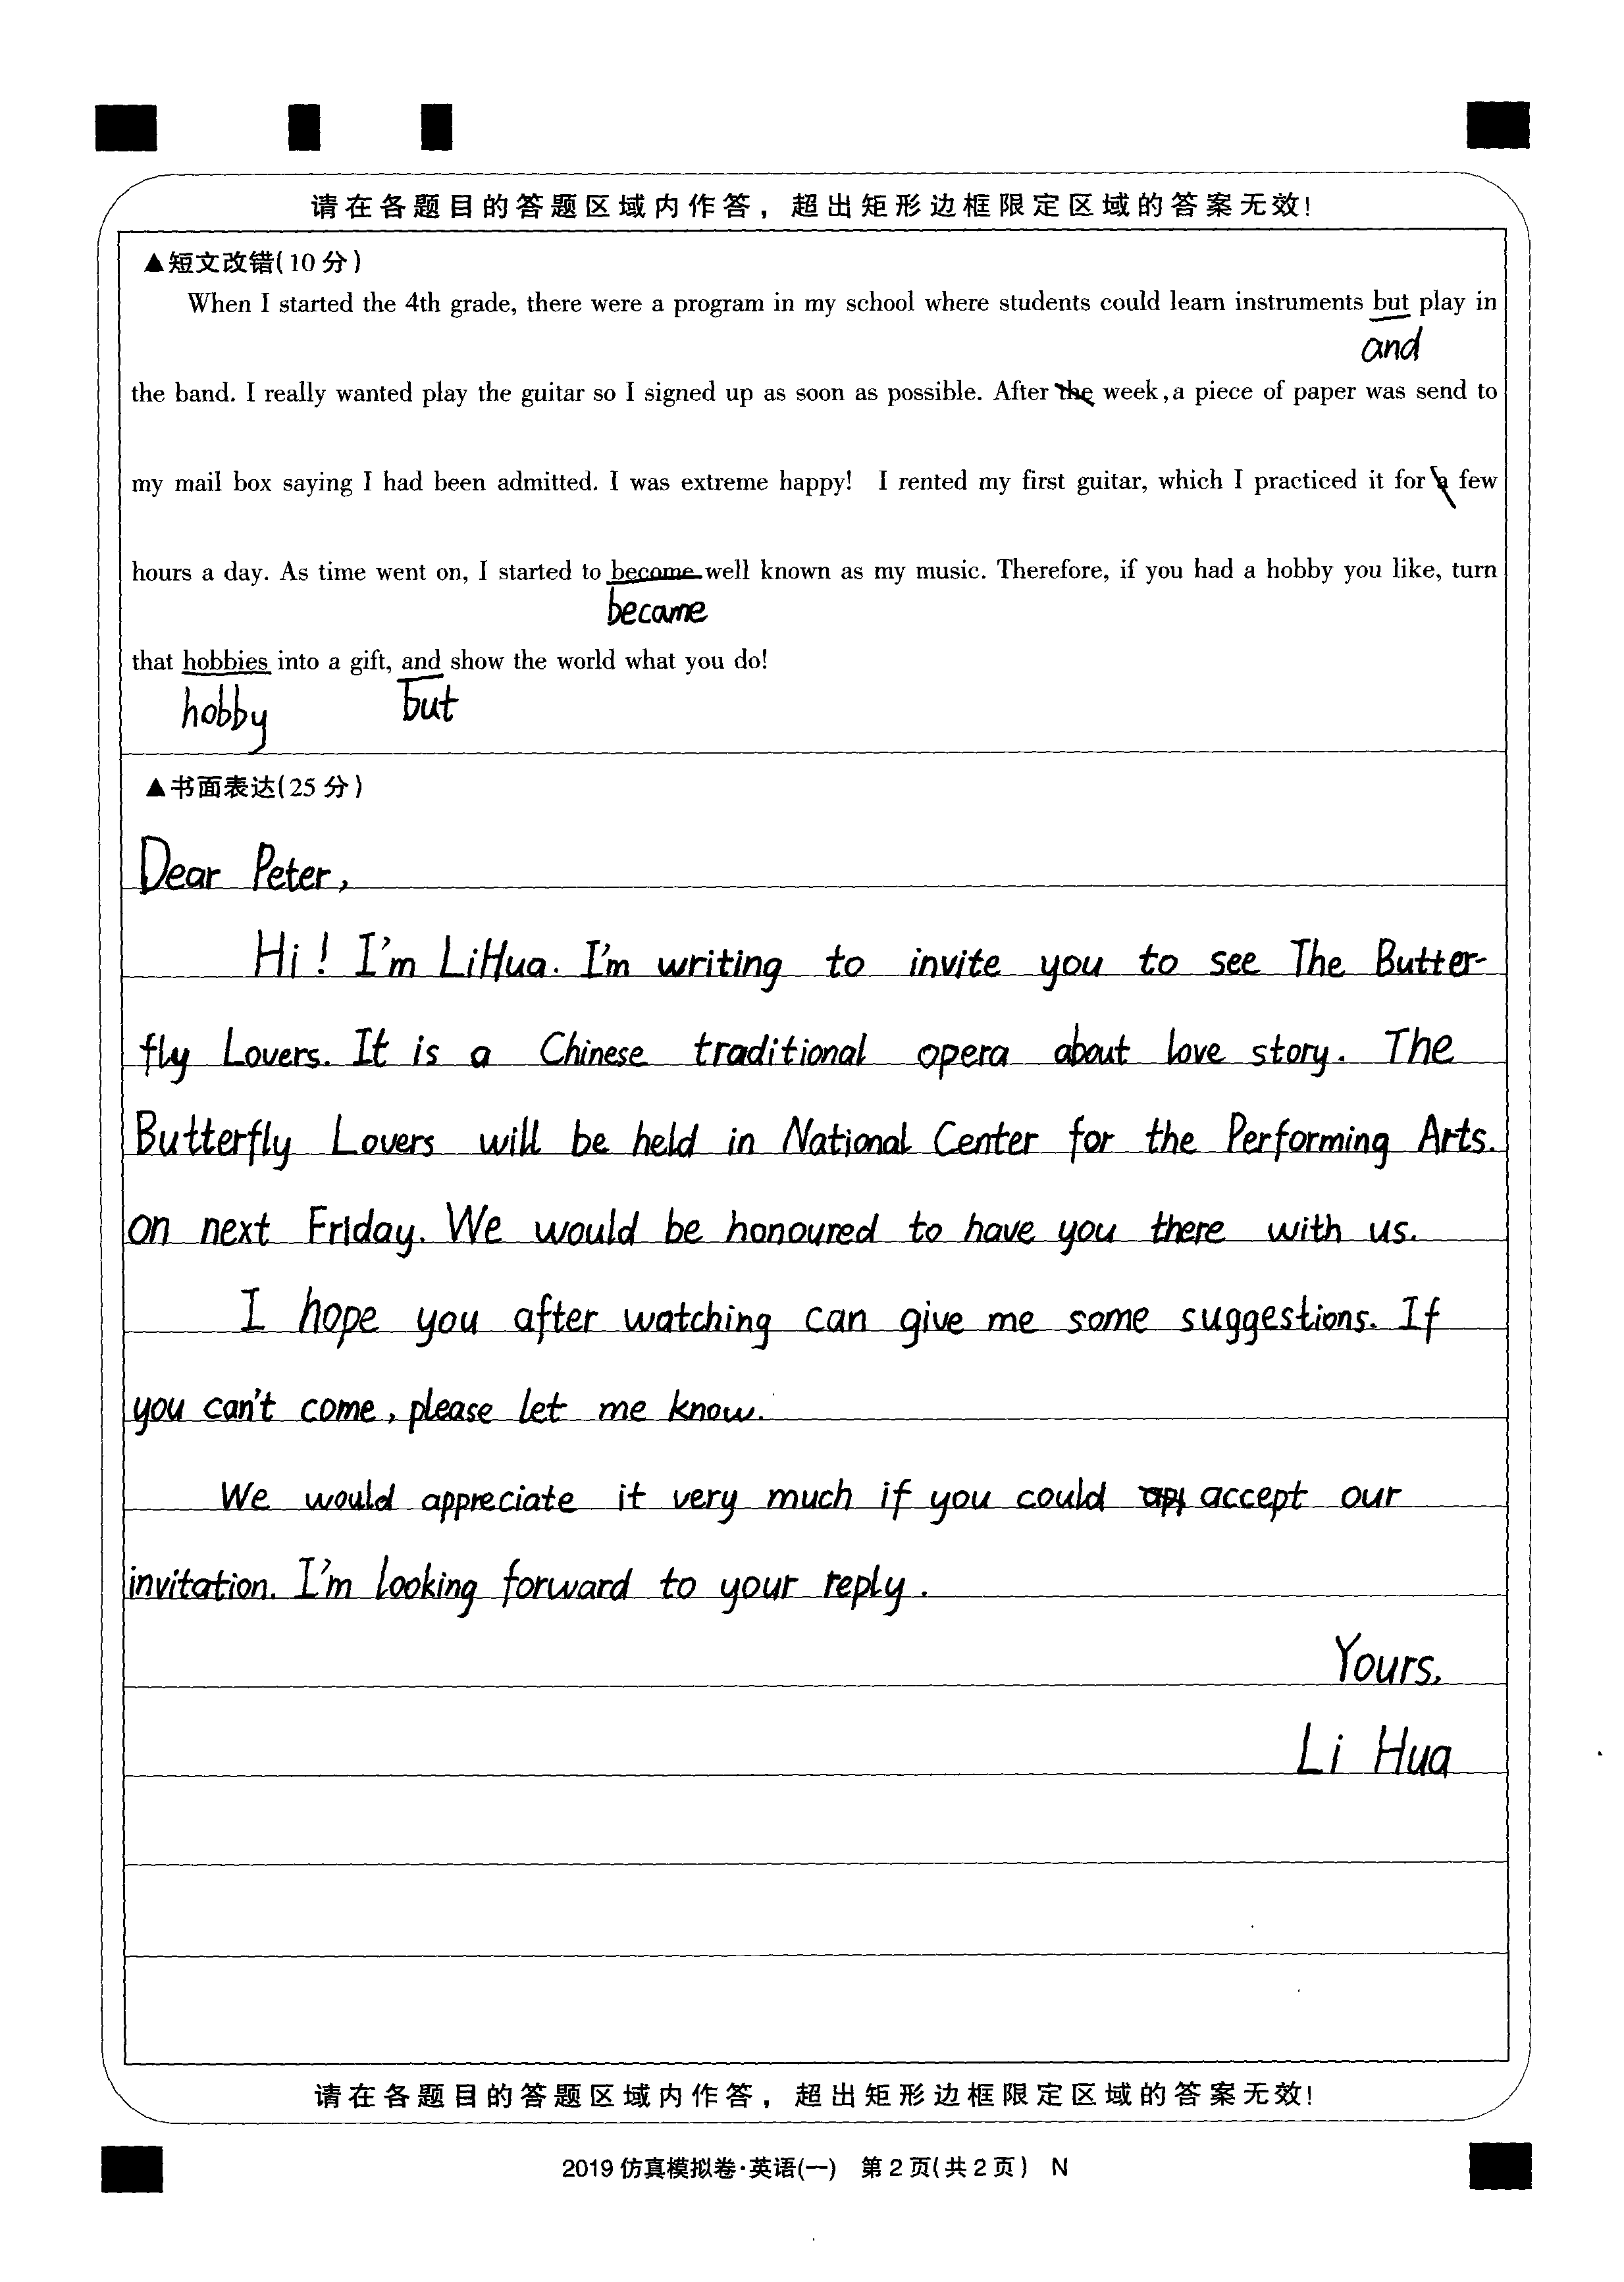 请在各题目的答题区域内作答，超出矩形边框限定区域的答案无效!
▲短文改错(10分)
When I started the 4th grade, there were a program in my school where students could learn instruments but play in
and
the band. I really wanted play the guitar so I signed up as soon as possible. After the week, a piece of paper was send to
my mail box saying I had been admitted. I was extreme happy! I rented my first guitar, which I practiced it for a few
hours a day. As time went on, I started to become well known as my music. Therefore, if you had a hobby you like, turn
became
that hobbies into a gift, and show the world what you do!
hobby but
▲书面表达(25分)
Dear Peter,
Hi! I'm LiHua. I'm writing to invite you to see The Butter-
fly Lovers. It is a Chinese traditional opera about love story. The
Butterfly Lovers will be held in National Center for the Performing Arts.
on next Friday. We would be honoured to have you there with us.
I hope you after watching can give me some suggestions. If
you can't come, please let me know.
We would appreciate it very much if you could accept our
invitation. I'm looking forward to your reply.
Yours,
Li Hua
请在各题目的答题区域内作答，超出矩形边框限定区域的答案无效!
2019仿真模拟卷·英语(一) 第2页(共2页) N